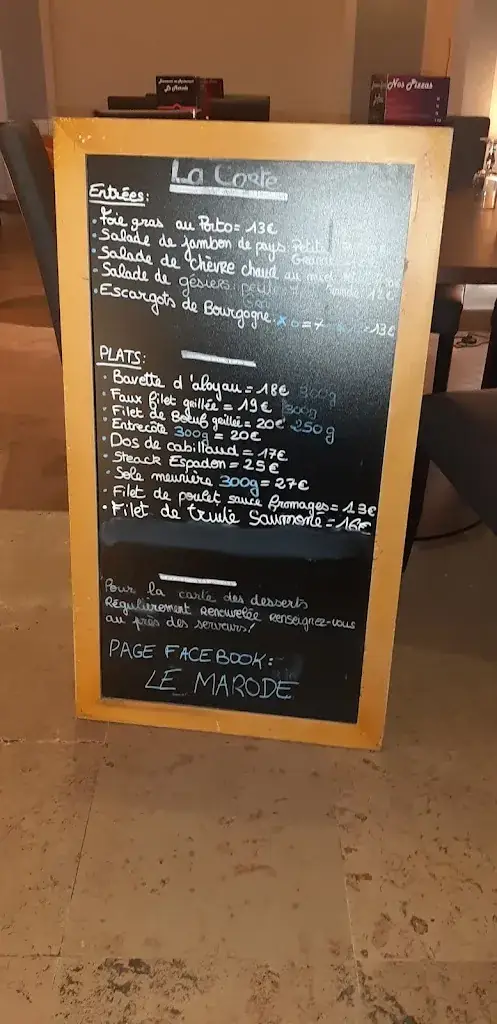 Nos Pizzas
La Carte
Entrées:
• Foie gras au Porto = 13€
• Salade de jambon de pays: Petite
Grande
• Salade de chèvre chaud au miel
• Salade de gésiers: petite 12€
• Escargots de Bourgogne. x 6 = 7 13€
PLATS:
• Bavette d'aloyau = 18€ 300g
• Faux filet grillée = 19€ 300g
• Filet de Bœuf grillée = 20€ 250g
• Entrecôte 300g = 20€
• Dos de cabillaud = 17€
• Steack Espadon = 25€
• Sole meunière 300g = 27€
• Filet de poulet sauce fromages = 13€
• Filet de truite Saumoné = 16€
Pour la carte des desserts
Régulièrement renouvelée renseignez-vous
au près des serveurs!
PAGE FACEBOOK:
LE MARODE